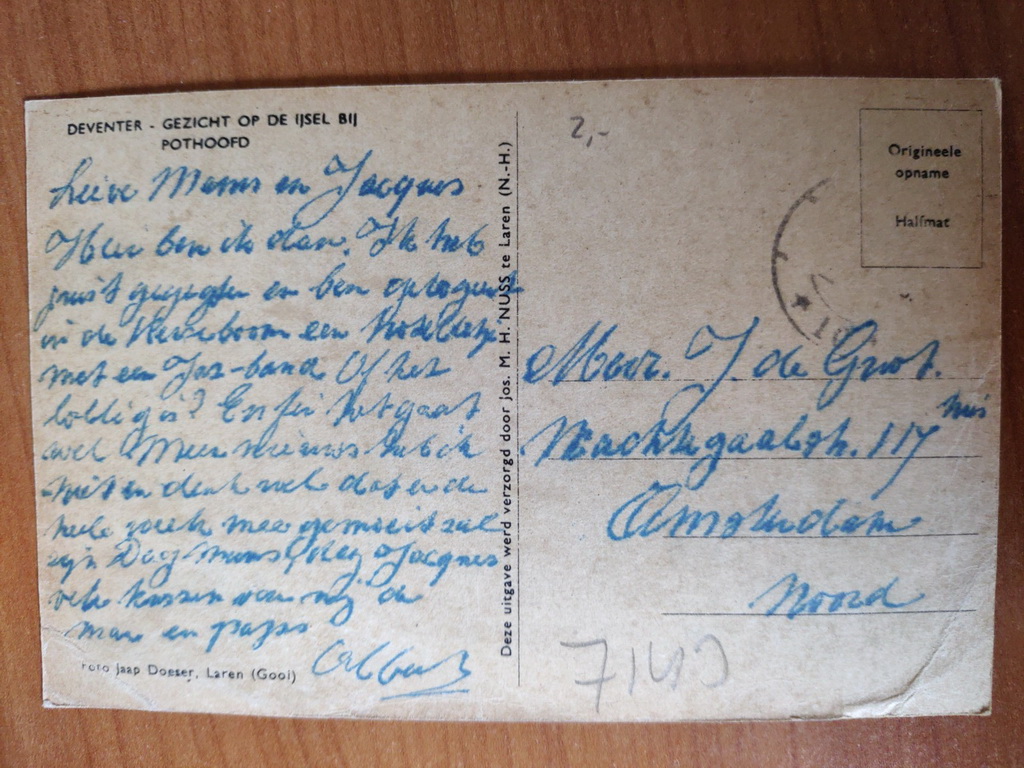 DEVENTER - GEZICHT OP DE IJSEL BIJ
POTHOOFD
Lieve Mams en Jacques
Hier ben ik dan. Ik heb
juist gegeten en ben
in de een
met een Jaz-band Of het
lollig is? Enfin het gaat
wel Meer nieuws heb ik
niet en denk wel dat er de
hele week mee gemoeid zal
zijn Dag mams, dag Jacques
vele kussen van mij de
man en paps
Albert
Foto Jaap Doeser, Laren (Gooi)
Deze uitgave werd verzorgd door Jos. M. H. NUSS te Laren (N.-H.)
2,-
Origineele
opname
Halfmat
Mevr. J. de Groot.
Nachtegaalstr. 117 huis
Amsterdam
Noord